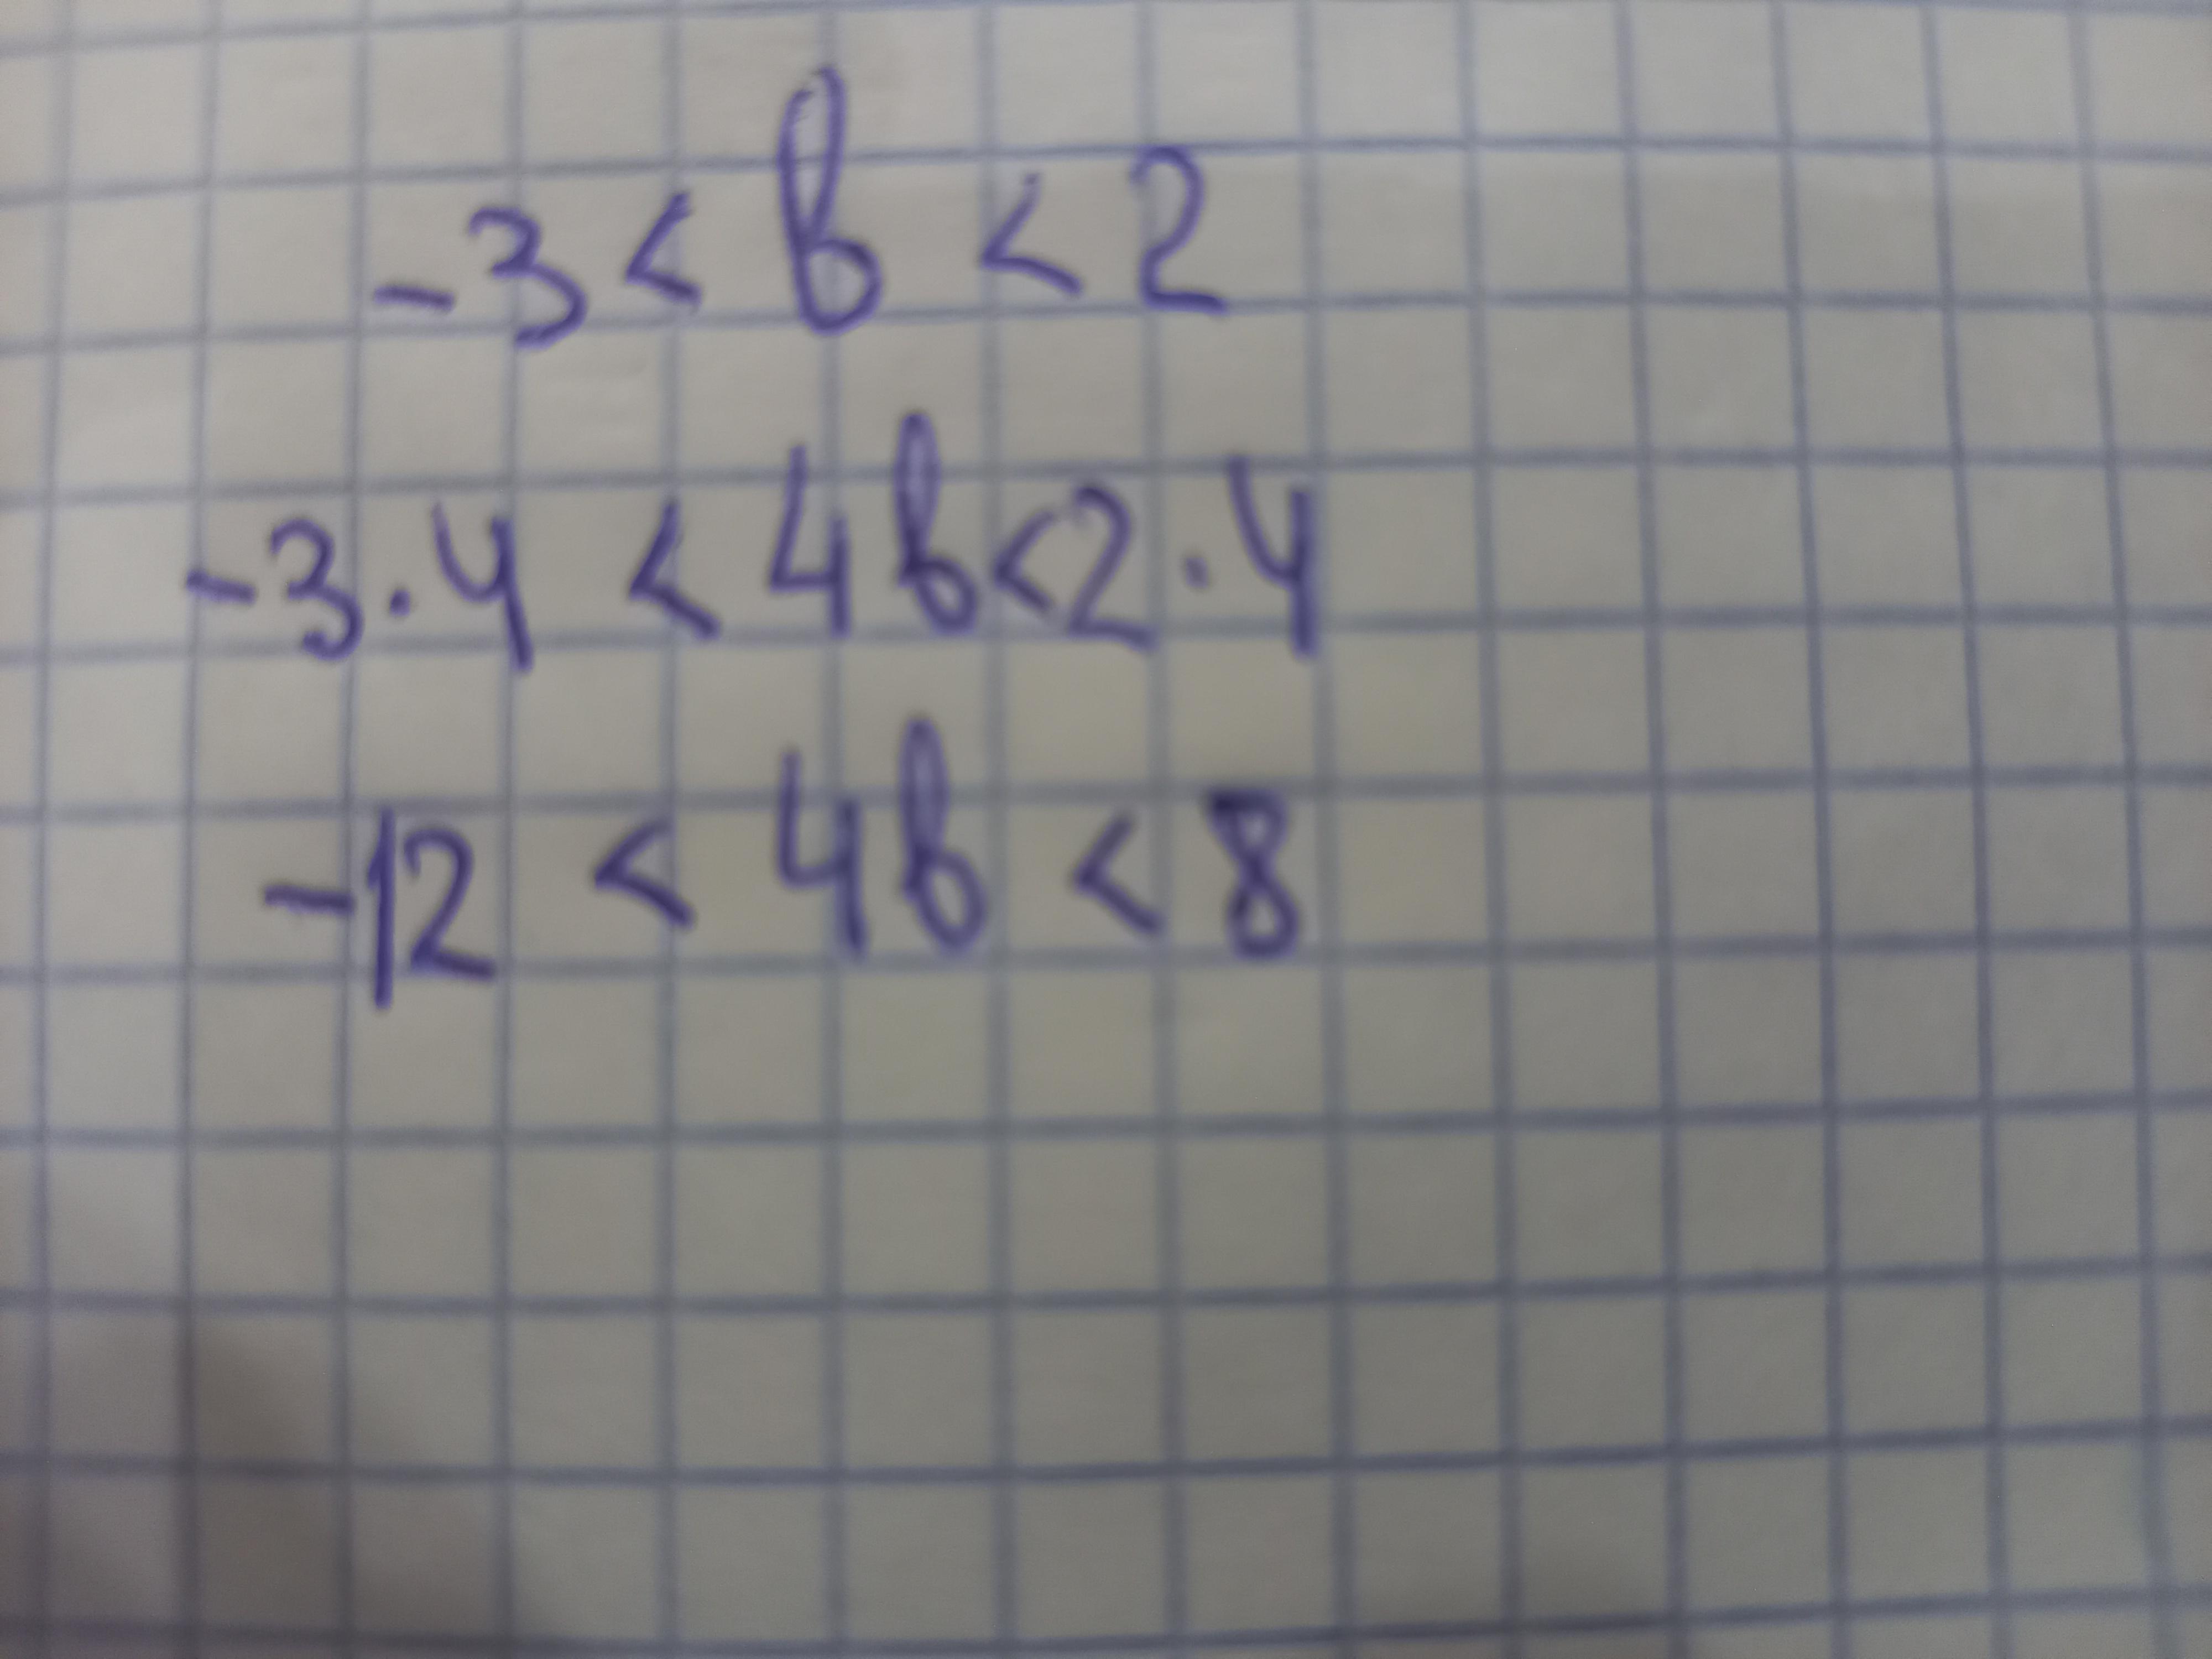 -3 < b < 2
-3 · 4 < 4b < 2 · 4
-12 < 4b < 8